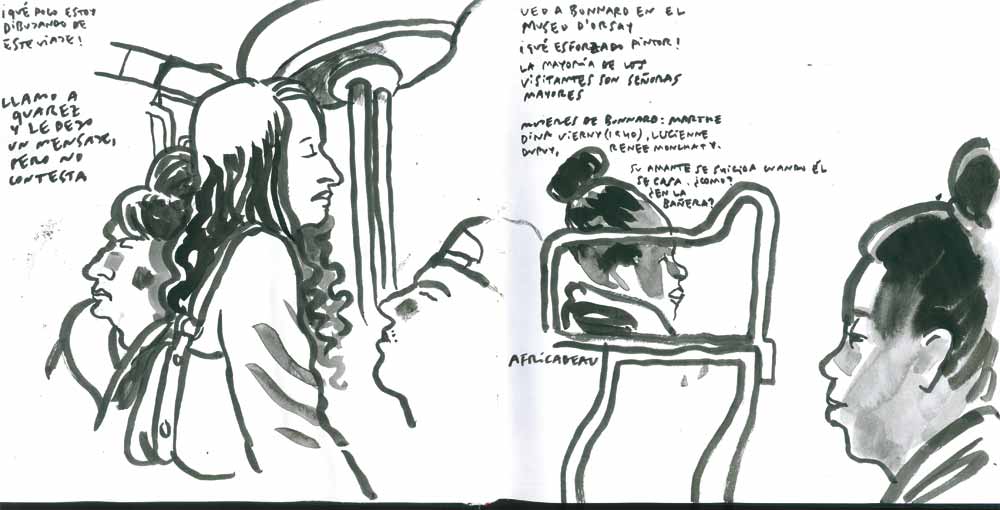 ¡QUÉ POCO ESTOY
DIBUJANDO DE
ESTE VIAJE!
LLAMO A
QUAREZ
Y LE DEJO
UN MENSAJE,
PERO NO
CONTESTA
VEO A BONNARD EN EL
MUSEO D'ORSAY
¡QUÉ ESFORZADO PINTOR!
LA MAYORÍA DE LOS
VISITANTES SON SEÑORAS
MAYORES
MUJERES DE BONNARD: MARTHE
DINA VIERNY (1940), LUCIENNE
DUPUY, RENEE MONCHATY.
SU AMANTE SE SUICIDA CUANDO ÉL
SE CASA. ¿COMO?
¿EN LA
BAÑERA?
AFRICADEAU